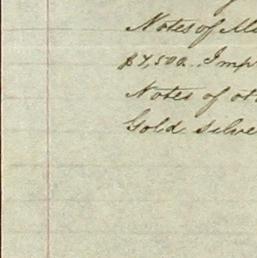 Notes of
$7,500. Imp
Notes of ot
Gold Silve